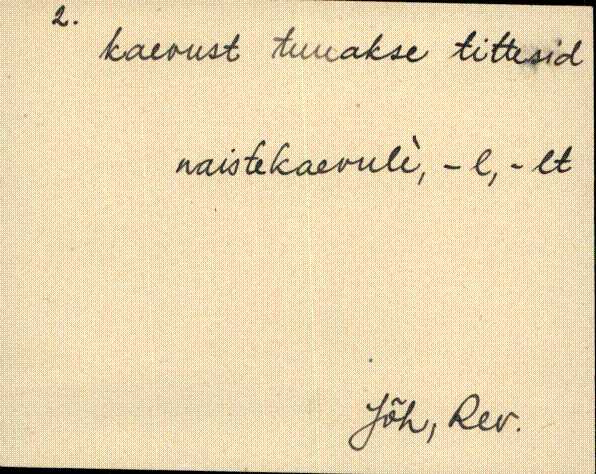 2.
kaevust tuuakse tittesid
naistekaevulè, - l, - lt
Jõh, Rev.